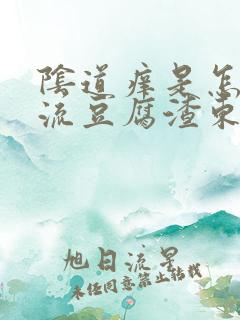 陰道痒是怎
流豆腐渣東
旭日流星
未经同意禁止转载